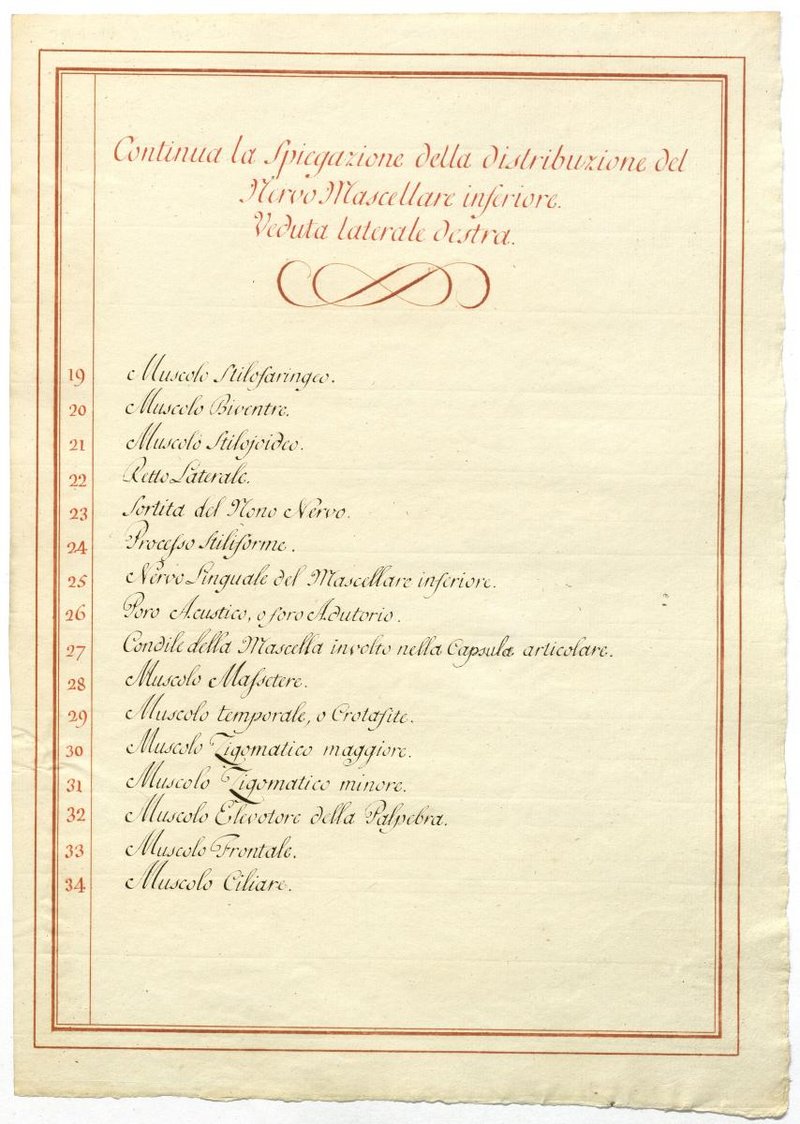 Continua la Spiegazione della distribuzione del
Nervo Mascellare inferiore.
Veduta laterale destra.
19 Muscolo Stilofaringeo.
20 Muscolo Biventre.
21 Muscolo Stilojoideo.
22 Retto Laterale.
23 Sortita del Nono Nervo.
24 Processo Stiliforme.
25 Nervo Linguale del Mascellare inferiore.
26 Poro Acustico, o foro Adutorio.
27 Condile della Mascella involto nella Capsula articolare.
28 Muscolo Massetere.
29 Muscolo temporale, o Crotafite.
30 Muscolo Zigomatico maggiore.
31 Muscolo Zigomatico minore.
32 Muscolo Elevotore della Palpebra.
33 Muscolo Frontale.
34 Muscolo Ciliare.